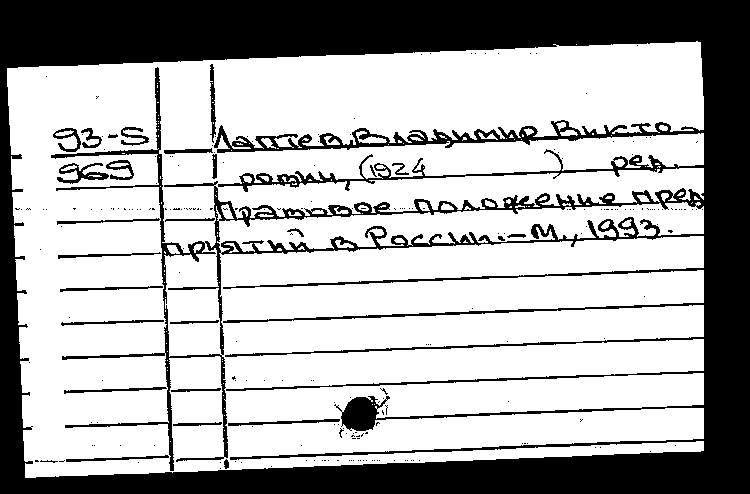 93-S Лаптев, Владимир Викто-
969 рович, (1924 ) ред.
Правовое положение пред
приятий в России. - М., 1993.